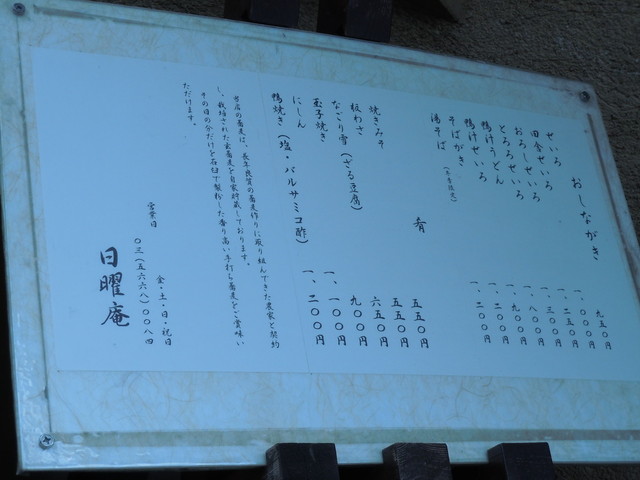 おしながき
せいろ 九五〇円
田舎せいろ 一、〇〇〇円
おろしせいろ 一、二五〇円
とろろせいろ 一、三〇〇円
鴨汁うどん 一、八〇〇円
鴨汁せいろ 一、九〇〇円
そばがき 一、二〇〇円
湯そば 一、二〇〇円
肴
焼きみそ 五五〇円
板わさ 五五〇円
なごり雪(ざる豆腐) 六五〇円
玉子焼き 九〇〇円
にしん 一、一〇〇円
鴨焼き(塩・バルサミコ酢) 一、二〇〇円
当店の蕎麦は、長年良質の蕎麦作りに取り組んできた農家と契約
し、栽培された玄蕎麦を自家貯蔵しております。
その日の分だけを石臼で製粉した香り高い手打ち蕎麦をご賞味い
ただけます。
営業日 金・土・日・祝日
〇三(五六六八)〇〇八四
日曜庵